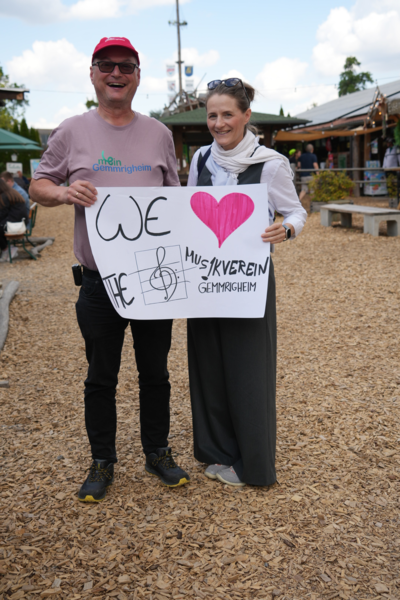 mein
Gemmrigheim
WE
THE MUSIKVEREIN
GEMMRIGHEIM